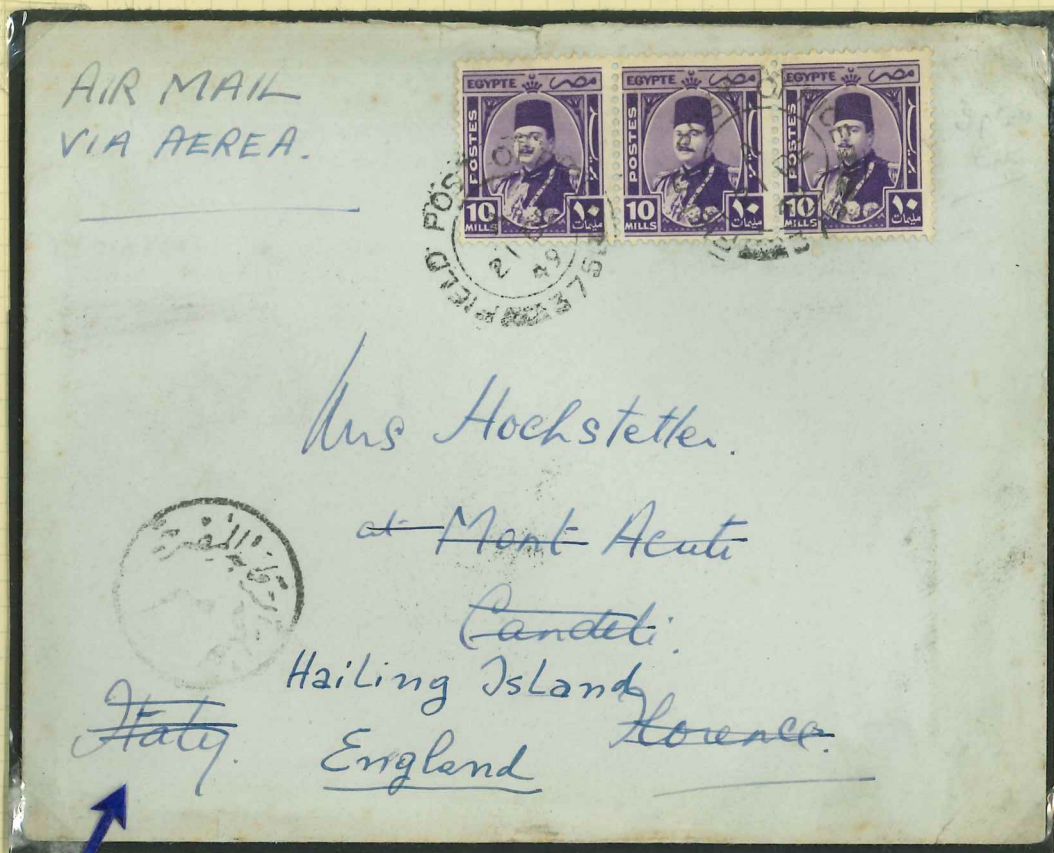 AIR MAIL
VIA AEREA.
EGYPTE مصر
POSTES
10 MILLS ١٠ مليمات
EGYPTE مصر
POSTES
10 MILLS ١٠ مليمات
EGYPTE مصر
POSTES
10 MILLS ١٠ مليمات
FIELD POST OFFICE
21
49
375
Mrs Hochstetler.
at Mont Acuti
Candeli.
Hailing Island
Italy.
Florence.
England